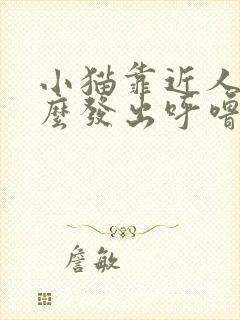 小猫靠近人
麼發出呼嚕
詹敏